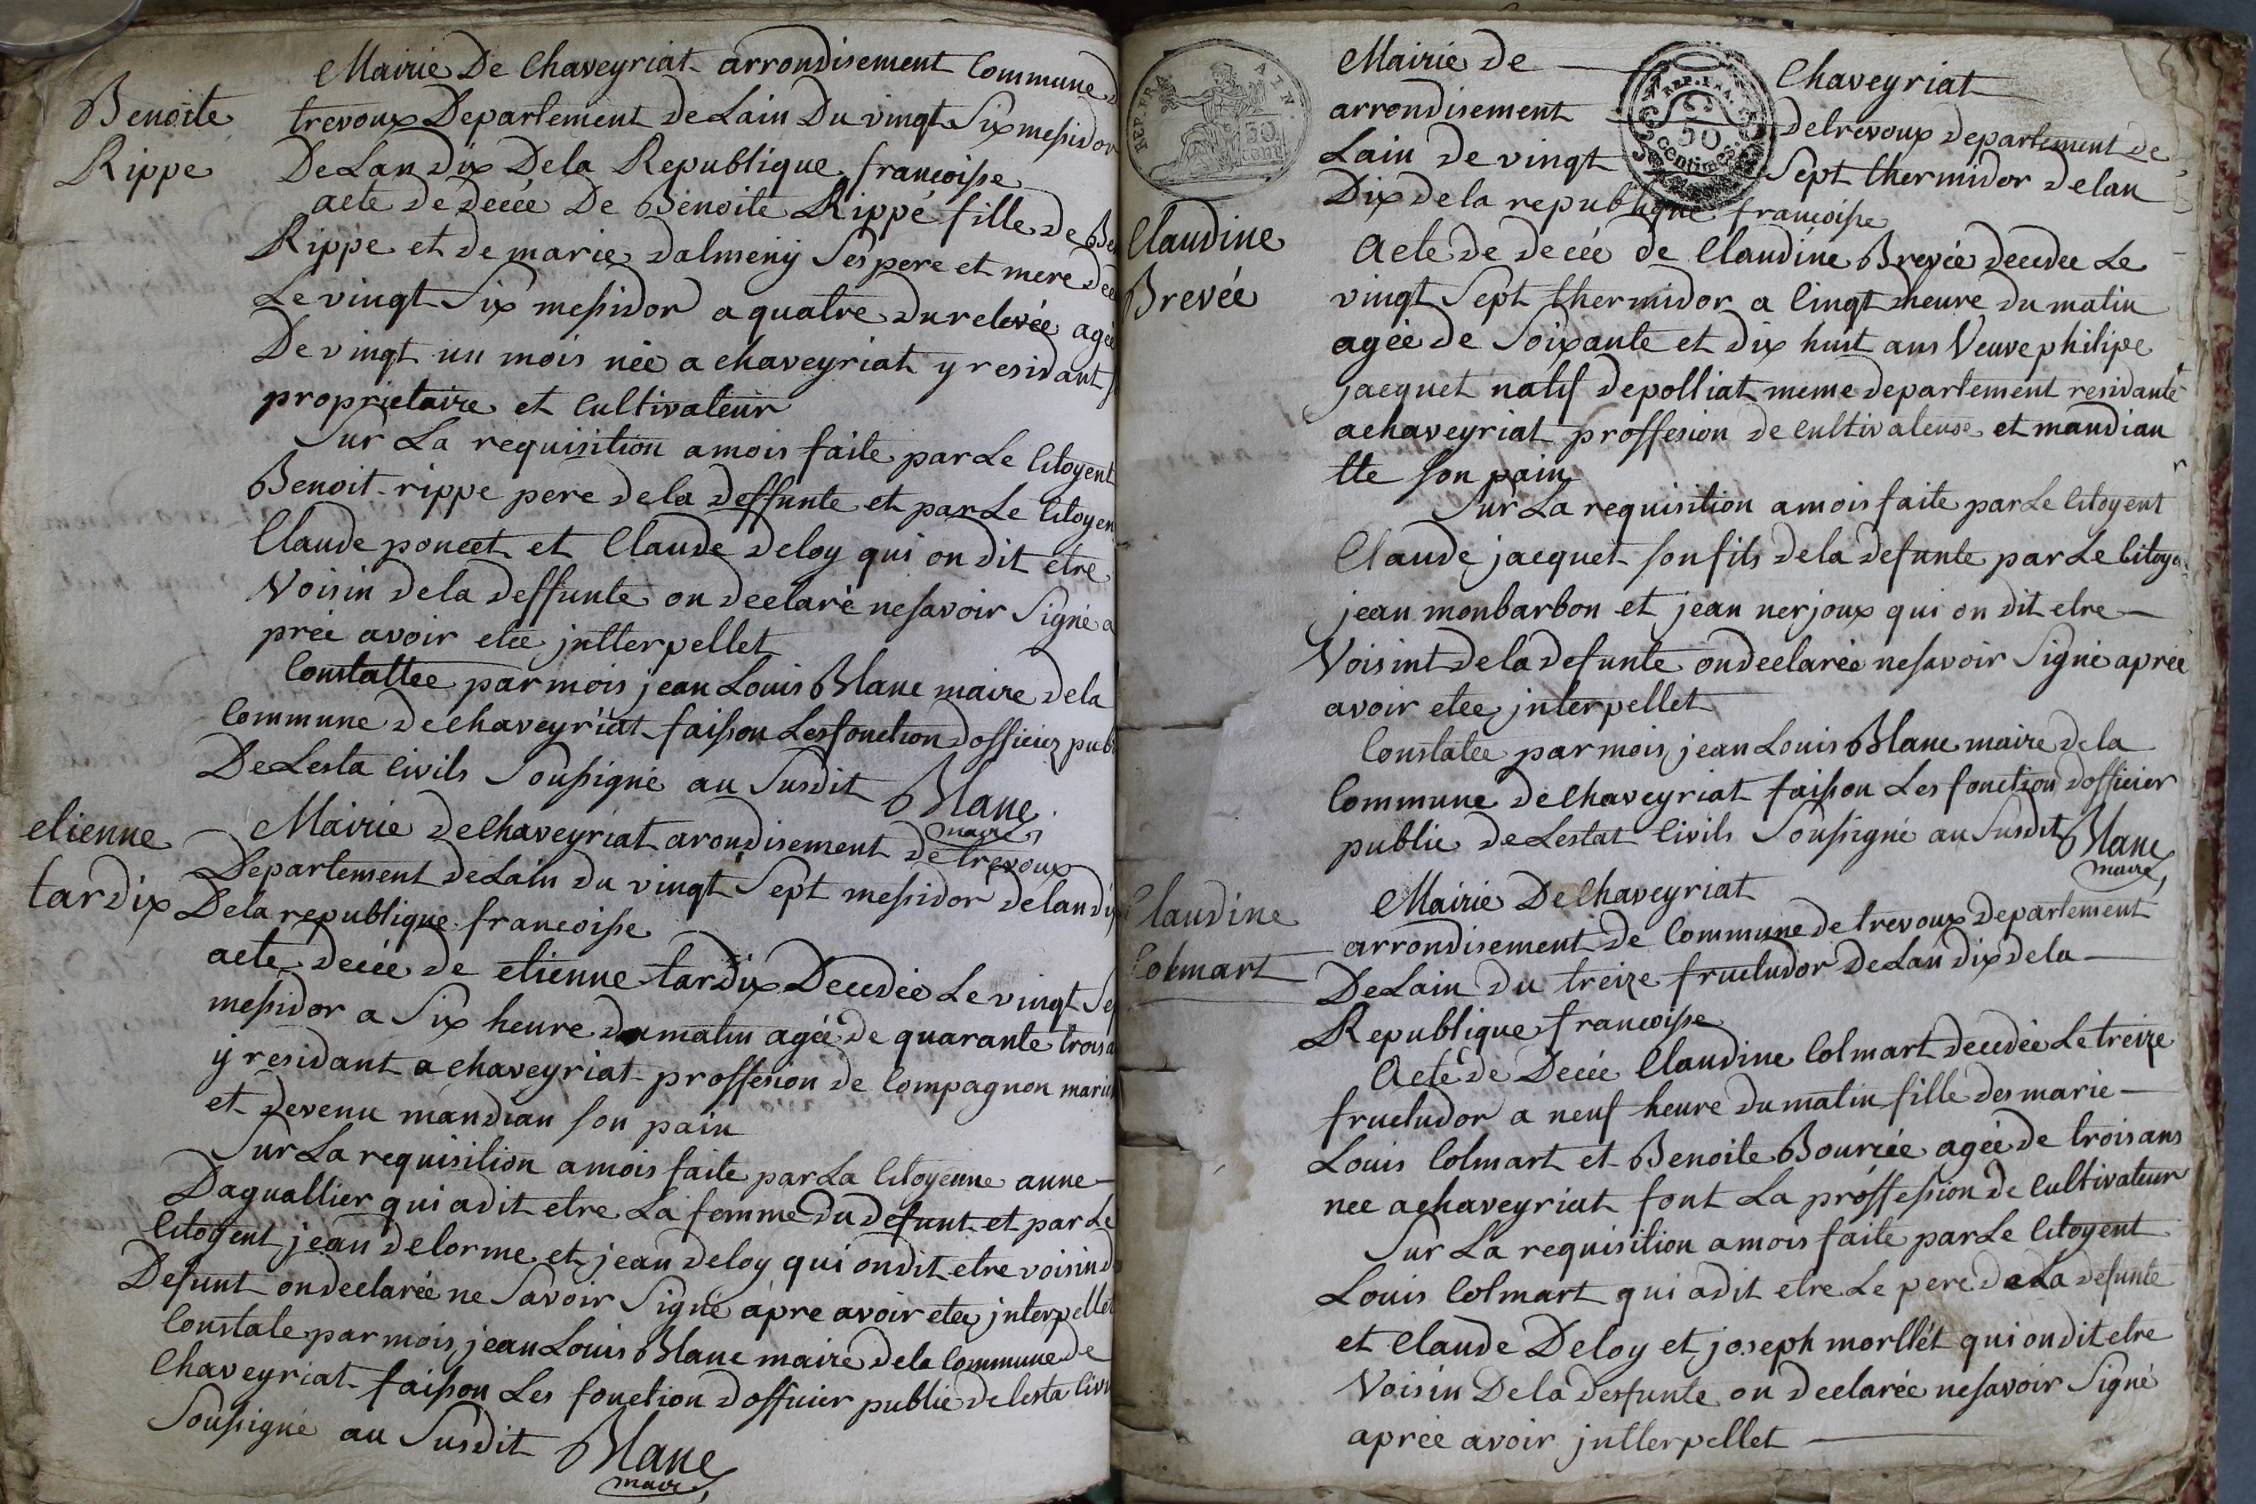 Benoite
Rippe
Mairie De Chaveyriat arrondisement Commune
trevoux Departement de Lain Du vingt Six messidor
De Lan dix De la Republique francoisse
acte de décée De Benoite Rippe fille de Be
Rippe et de marie dalmeny Ses pere et mere déc
Le vingt Six messidor a quatre du relevée agée
De vingt un mois née a chaveyriat y residant
proprietaire et Cultivateur
Sur La requisition a mois faite par Le Citoyent
Benoit rippe pere de la deffunte et par Le Citoyen
Claude poncet et Claude deloy qui on dit etre
Voisin de la deffunte on declaré ne savoir Signé a
prée avoir etee jntterpellet
Constattee par mois jean Louis Blanc maire de la
Commune de chaveyriat faisson Les fonction dofficiez pub
De Lesta Civils Soussigné au Susdit Blanc
maire
etienne
tardix
Mairie de Chaveyriat arondisement de trevoux
Departement de Lain du vingt Sept messidor de lan di
De la republique francoisse
acte decée de etienne tardix Decedée Le vingt Se
messidor a Six heure du matin agée de quarante trois a
ÿ residant a chaveyriat proffesion de Compagnon
et devenu mandian son pain
Sur La requisition a mois faite par La Citoyenne anne
Daguallier qui a dit etre La femme du defunt et par Le
Citoyent jean delorme et jean deloy qui on dit etre voisin d
Defunt on declarée ne Savoir Signé apre avoir etee jnterpellet
Constate par mois jean Louis Blanc maire de la Commune de
Chaveyriat faisson Les fonction dofficier public de lesta Civi
Soussigné au Susdit Blanc
maire
REP. FRA. 50 cent
REP. FRA. 50 centimes
Mairie de Chaveyriat
arrondisement de trevoux departement de
Lain de vingt Sept thermidor de lan
Dix de la republique francoisse
Claudine
Brevée
Acte de decée de Claudine Brevée decedee Le
vingt Sept thermidor a Cinqt dheure du matin
agée de Soixante et dix huit ans Veuve philipe
jacquet natif de polliat meme departement residante
a chaveyriat proffesion de cultivateuse et mandian
tte son pain
Sur La requisition a mois faite par Le Citoyent
Claude jacquet son fils de la defunte par Le Citoye
jean monbarbon et jean nerjoux qui on dit etre
Voisint de la defunte on declarée ne savoir Signé aprée
avoir etee jnterpellet
Constatee par mois jean Louis Blanc maire de la
Commune de Chaveyriat faisson Les fonction dofficier
public de Lestat Civils Soussigné au Susdit Blanc
maire
Claudine
Colmart
Mairie De Chaveyriat
arrondisement de Commune de trevoux departement
De Lain Du treize fructudor De Lan dix de la
Republique francoisse
Acte de Decée Claudine Colmart decedée Le treize
fructudor a neuf heure du matin fille des marie
Louis Colmart et Benoite Bourcée agée de trois ans
nee a chaveyriat font La proffession de Cultivateur
Sur La requisition a mois faite par Le Citoyent
Louis Colmart qui a dit etre Le pere de La defunte
et Claude Deloy et joseph morllét qui on dit etre
Voisin De la desfunte on declarée ne savoir Signé
aprée avoir jntterpellet